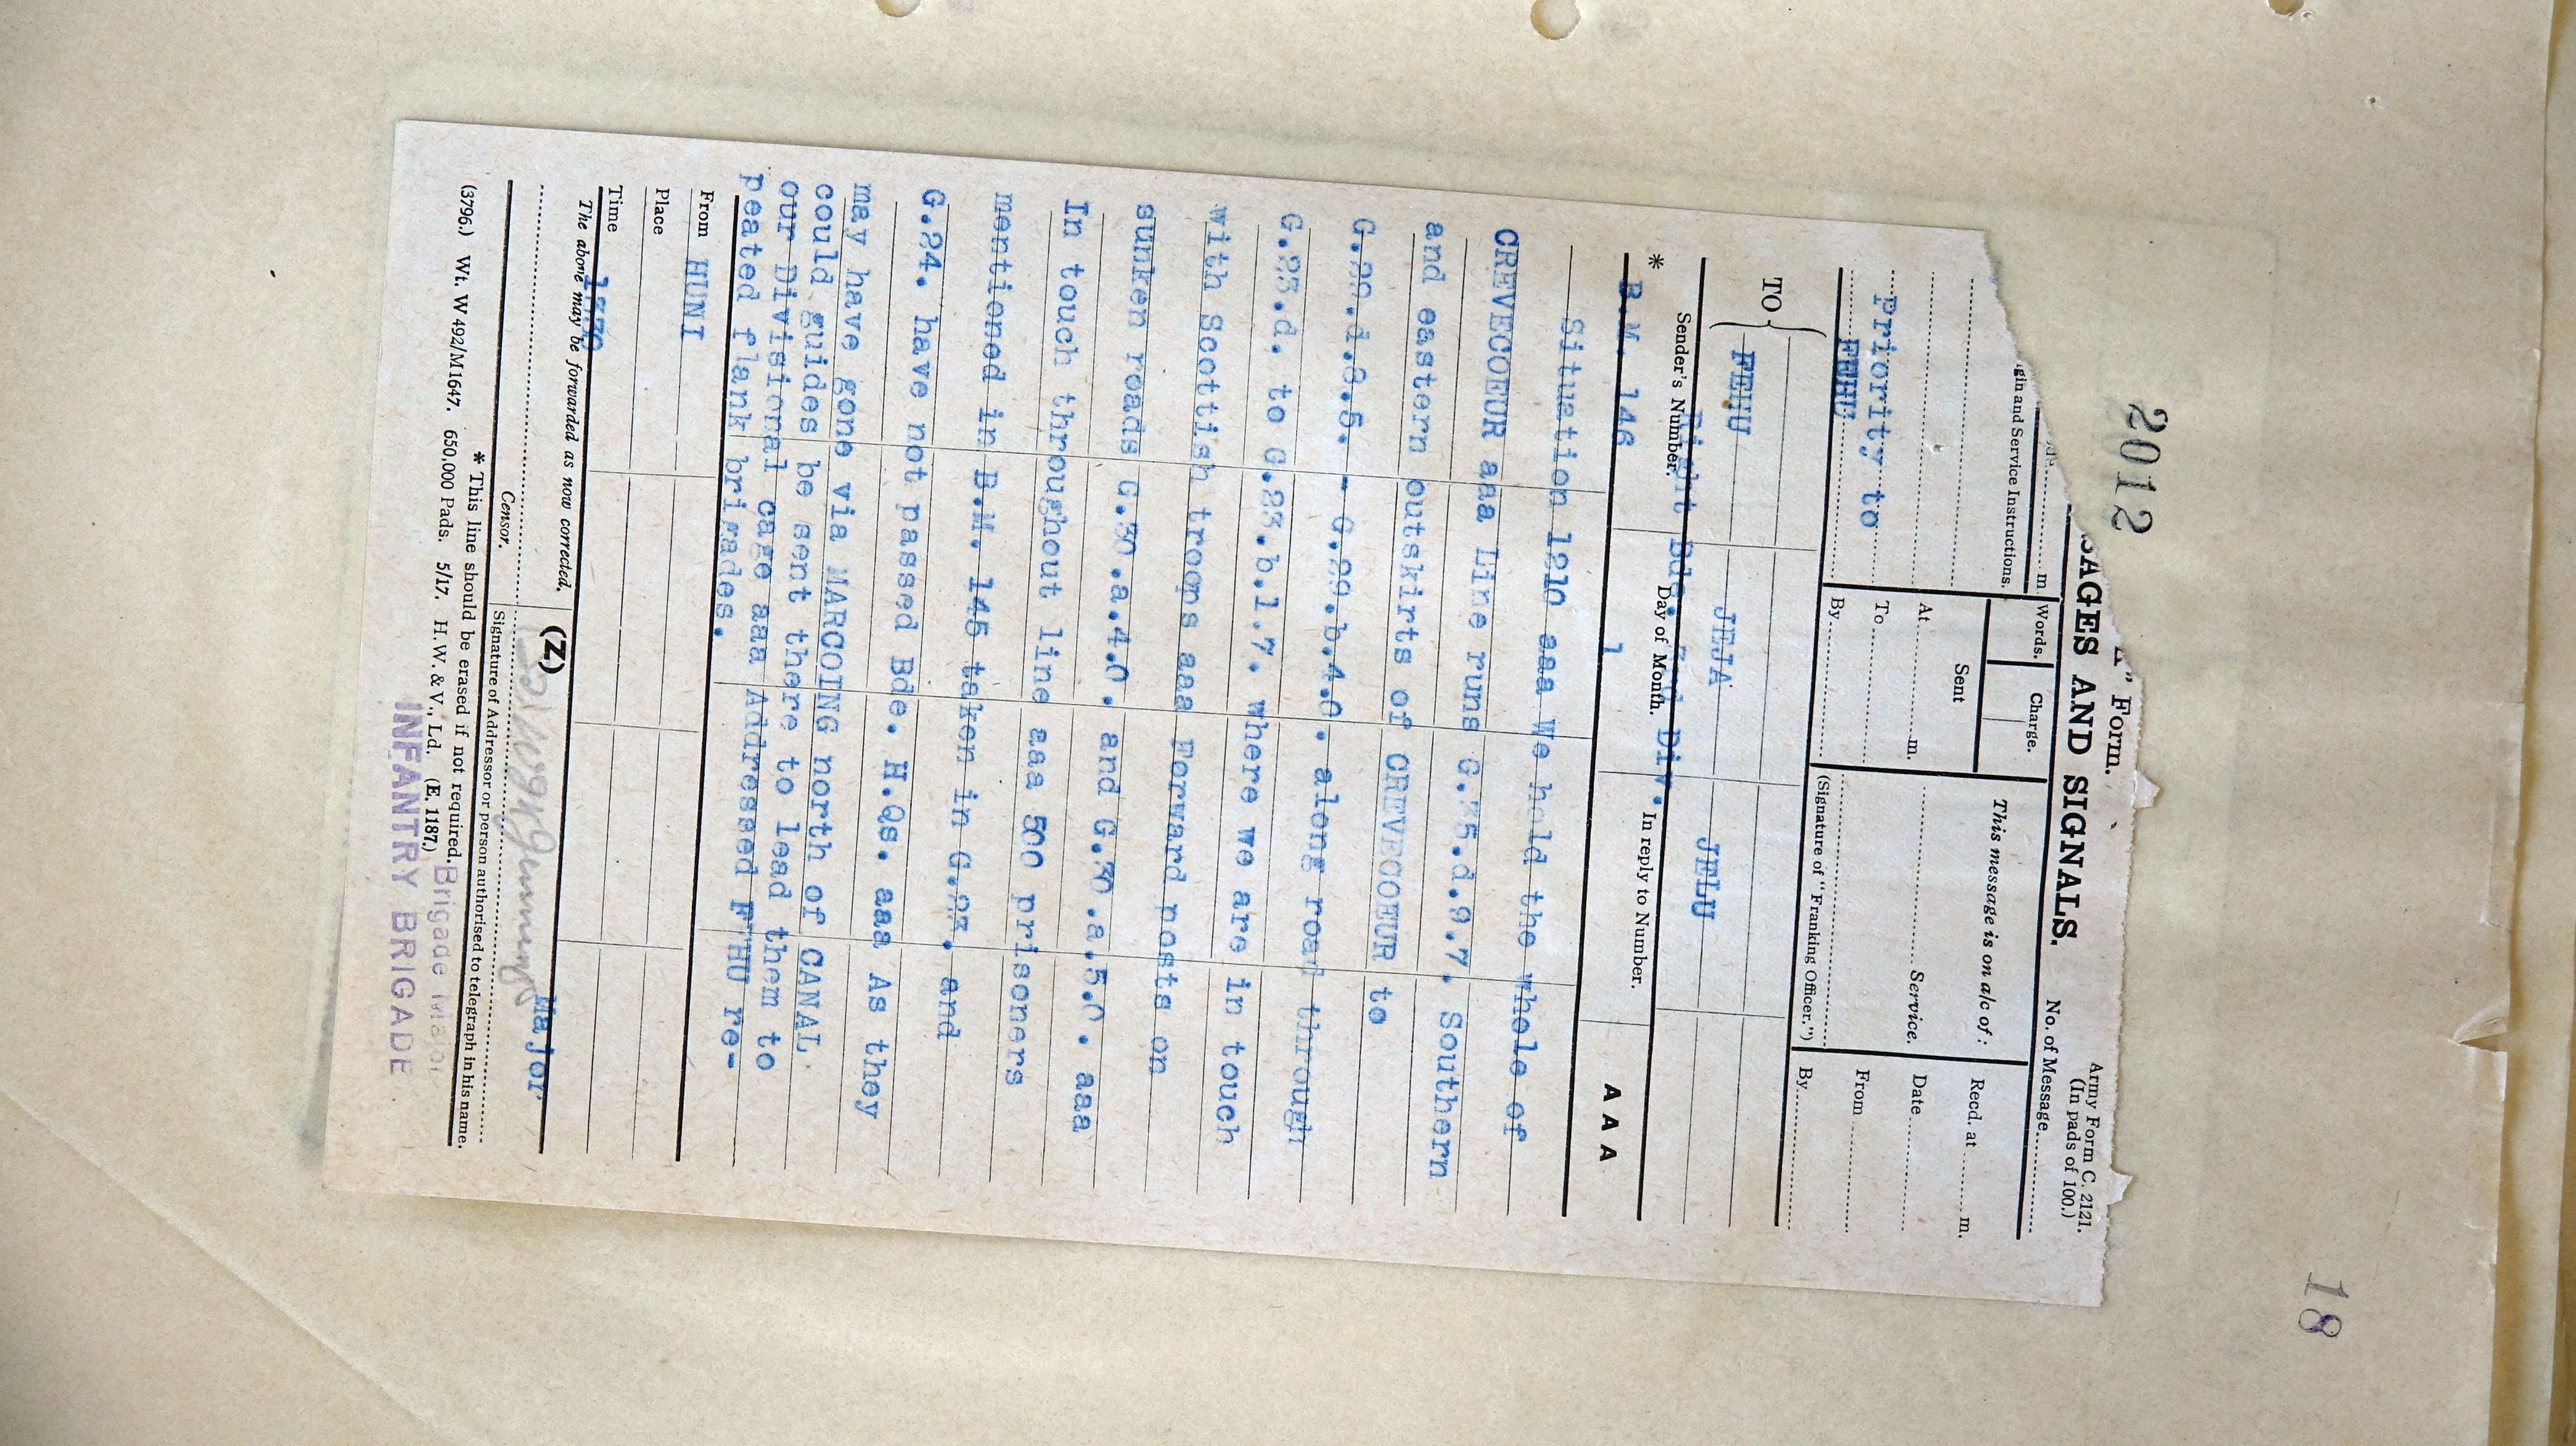 2012
18
"A" Form.
SAGES AND SIGNALS.
Army Form C. 2121.
(In pads of 100.)
No. of Message
m.
Words.
Charge.
gin and Service Instructions.
This message is on a/c of :
Recd. at m.
Sent
Date
Service.
At m.
From
Priority to
To
FEHU
By
(Signature of "Franking Officer.")
By
TO
FEHU JEJA JELU
Right Bde. Div.
* Sender's Number. Day of Month. In reply to Number.
B.M. 146 1 A A A
Situation 1210 aaa We hold the whole of
CREVECOEUR aaa Line runs G.35.d.9.7. Southern
and eastern outskirts of CREVECOEUR to
G.29.d.8.5. - G.29.b.4.0. along road through
G.23.d. to G.23.b.1.7. where we are in touch
with Scottish troops aaa Forward posts on
sunken roads G.30.a.4.0. and G.30.a.5.0. aaa
In touch throughout line aaa 500 prisoners
mentioned in B.M. 145 taken in G.23. and
G.24. have not passed Bde. H.Qs. aaa As they
may have gone via MARCOING north of CANAL
could guides be sent there to lead them to
our Divisional cage aaa Addressed FEHU re-
peated flank brigades.
From HUNI
Place
Time
The above may be forwarded as now corrected. (Z)
Major
Censor. Signature of Addressor or person authorised to telegraph in his name.
* This line should be erased if not required.
(3796.) Wt. W 492/M1647. 650,000 Pads. 5/17. H.W. & V., Ld. (E. 1187.)
Brigade Major
INFANTRY BRIGADE